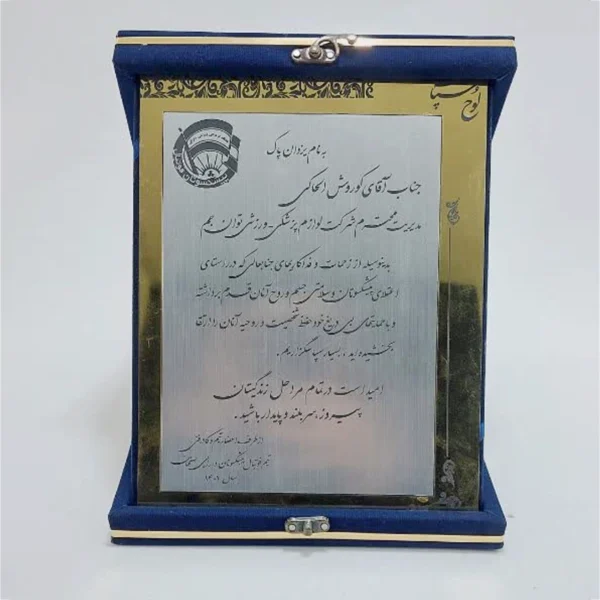 لوح سپاس
به نام یزدان پاک
جناب آقای کوروش الحاکی
مدیریت محترم شرکت لوازم پزشکی - ورزشی توان جم
بدینوسیله از زحمات و فداکاریهای جنابعالی که در راستای
اعتلای پیشکسوتان و سلامتی جسم و روح آنان قدم برداشته
و با حمایتهای بی دریغ خود حفظ شخصیت و روحیه آنان را ارتقا
بخشیده اید ، بسیار سپاسگزاریم .
امید است در تمام مراحل زندگیتان
پیروز ، سربلند و پایدار باشید .
از طرف اعضا تیم و کادر فنی
تیم فوتبال پیشکسوتان
سال ۱۴۰۱